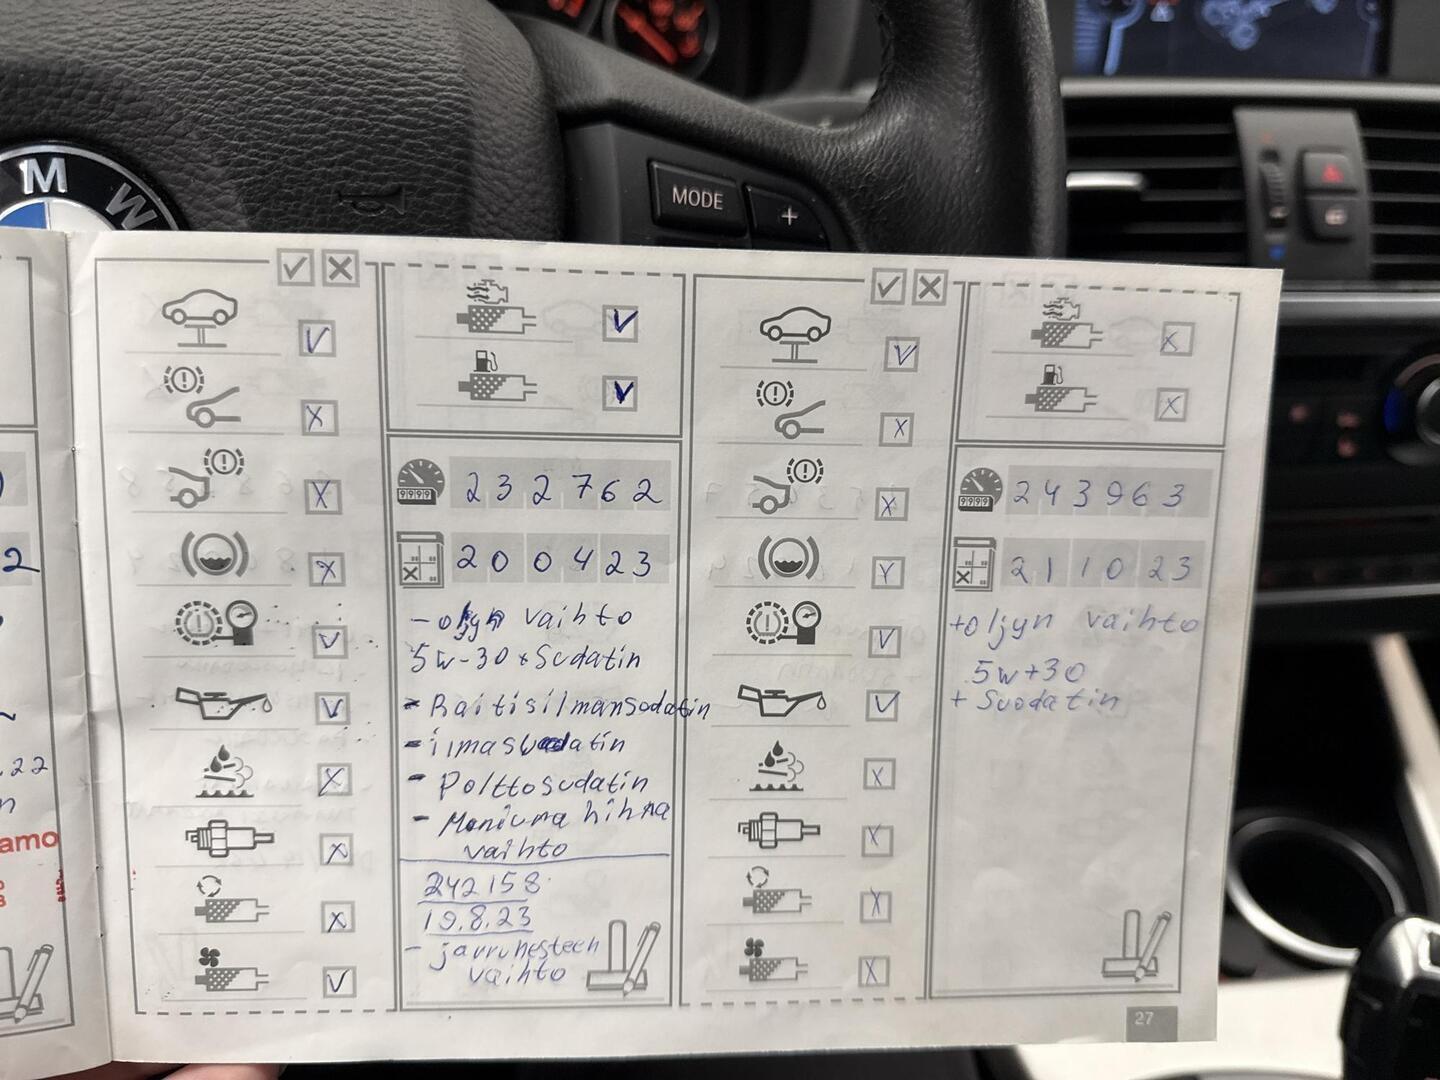 M W
MODE
+
2
.22
n
amo
232762
200423
- oljyn vaihto
5w-30 + Sudatin
- Raitisilmansodatin
- ilmasuodatin
- Polttosudatin
- Moniura hihna
vaihto
242158
19.8.23
- jarrunesteen
vaihto
243963
211023
+oljyn vaihto
5w+30
+ Suodatin
27